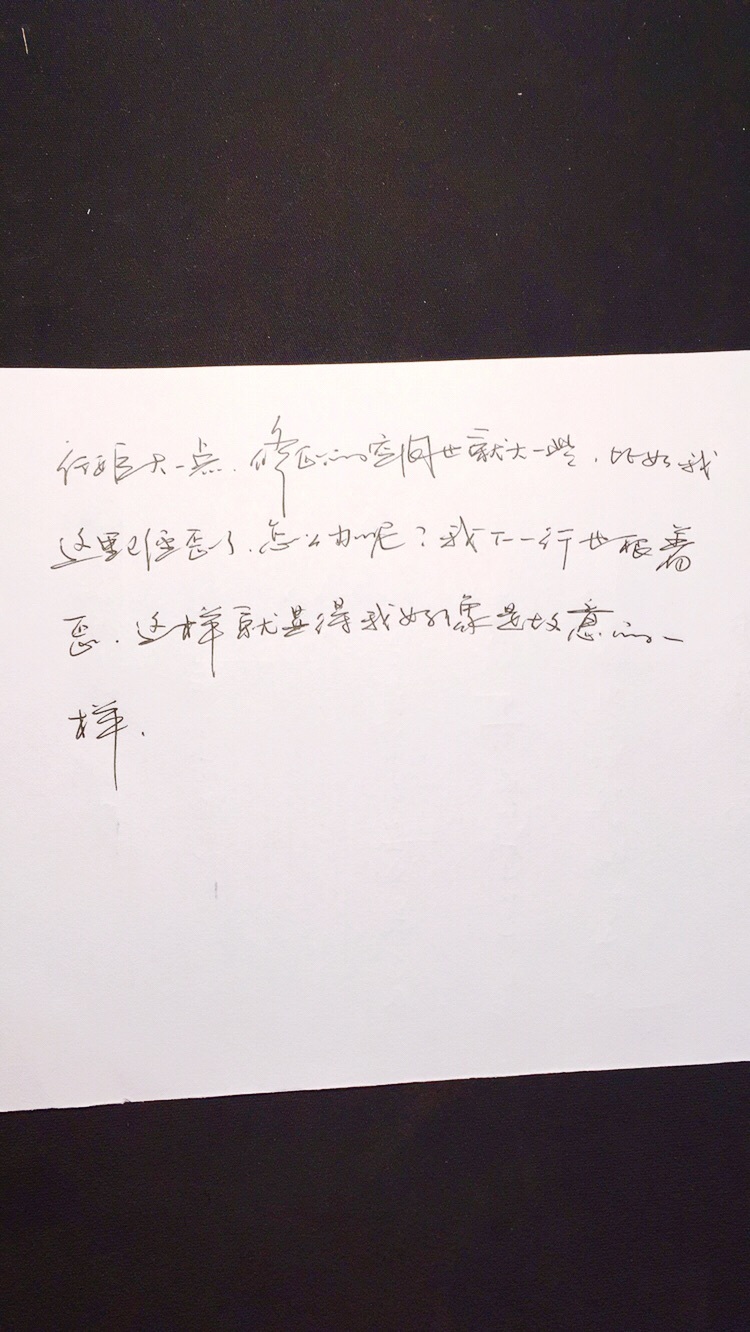 行距大一点.修正的空间也就大一些.比如我
这里已经歪了.怎么办呢?我下一行也跟着
歪.这样就显得我好像是故意的一
样.